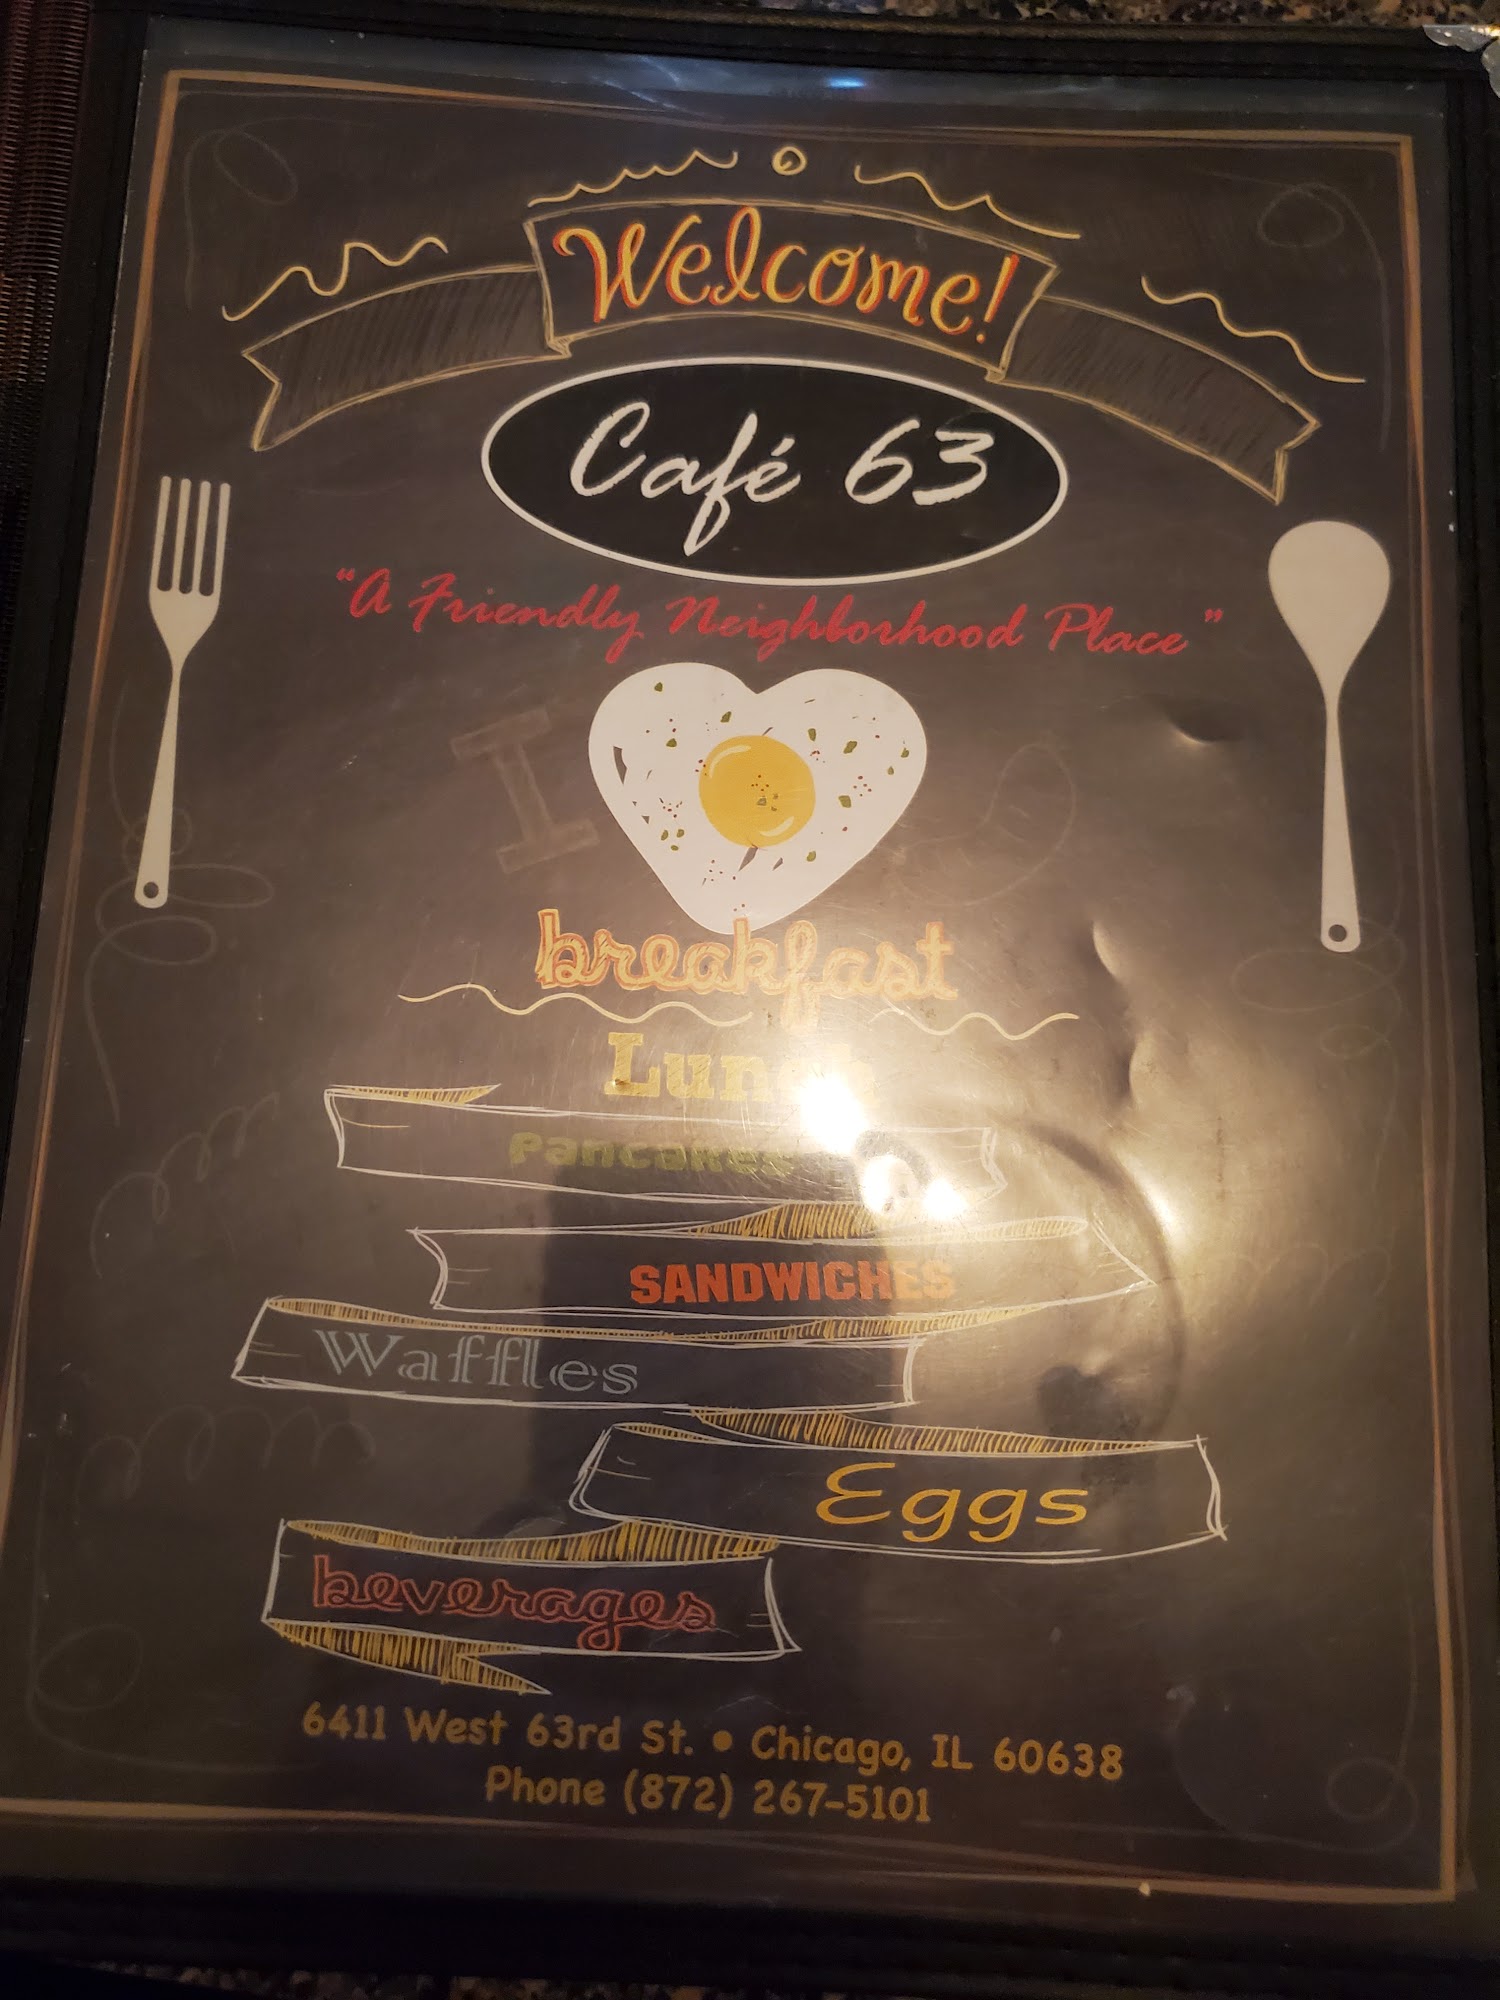 Welcome!
Café 63
"A Friendly Neighborhood Place"
I
breakfast
Lunch
Pancakes
SANDWICHES
Waffles
Eggs
beverages
6411 West 63rd St. • Chicago, IL 60638
Phone (872) 267-5101